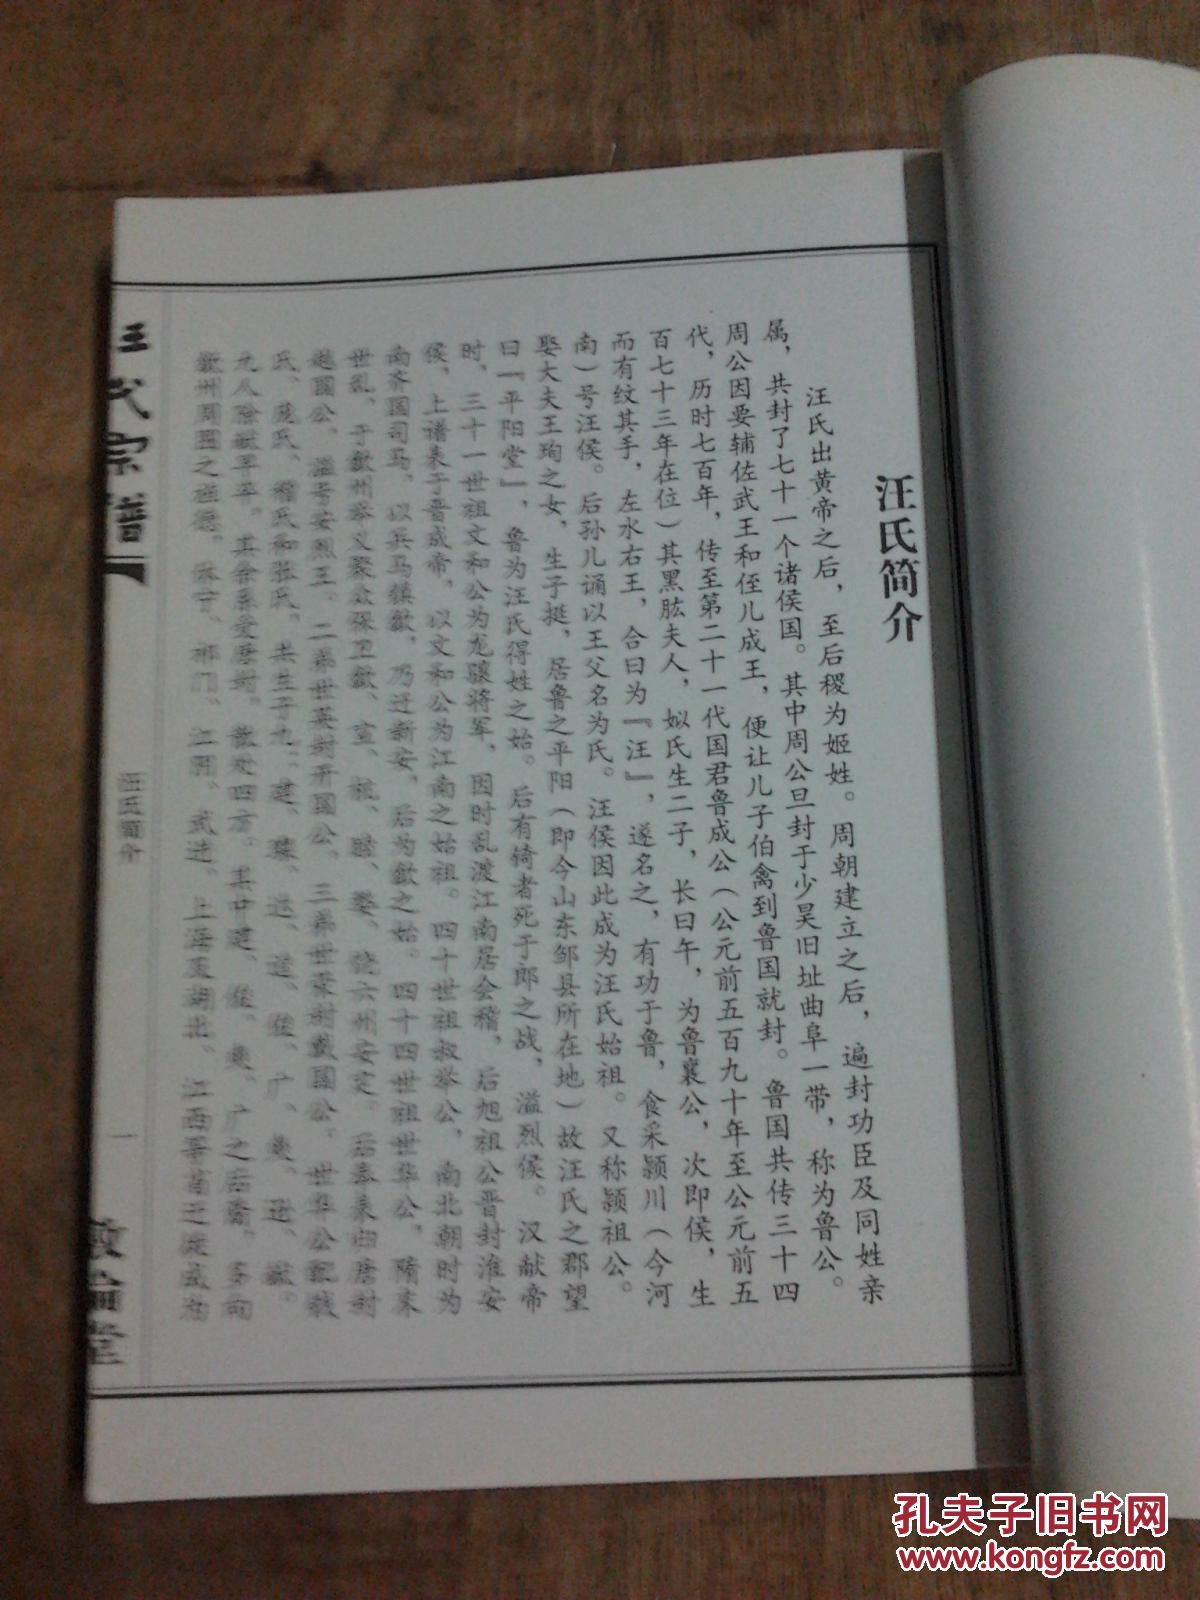 汪氏简介
汪氏出黄帝之后，至后稷为姬姓。周朝建立之后，遍封功臣及同姓亲
属，共封了七十一个诸侯国。其中周公旦封于少昊旧址曲阜一带，称为鲁公。
周公因要辅佐武王和侄儿成王，便让儿子伯禽到鲁国就封。鲁国共传三十四
代，历时七百年，传至第二十一代国君鲁成公（公元前五百九十年至公元前五
百七十三年在位）其黑肱夫人，姒氏生二子，长曰午，为鲁襄公，次即侯，生
而有纹其手，左水右王，合曰为『汪』，遂名之，有功于鲁，食采颍川（今河
南）号汪侯。后孙儿诵以王父名为氏。汪侯因此成为汪氏始祖。又称颍祖公。
娶大夫王珣之女，生子挺，居鲁之平阳（即今山东邹县所在地）故汪氏之郡望
曰『平阳堂』，鲁为汪氏得姓之始。后有锜者死于郎之战，溢烈侯。汉献帝
时，三十一世祖文和公为龙骧将军，因时乱渡江南居会稽，后旭祖公晋封淮安
侯、上谱表于晋成帝，以文和公为江南之始祖。四十世祖叔举公，南北朝时为
南齐国司马，以兵马镇歙，乃迁新安，后为歙之始。四十四世祖世华公，隋末
世乱，于歙州举义聚众保卫歙、宣、杭、睦、婺、饶六州安定。后奉表归唐封
越国公。溢号安烈王。二弟世英封开国公。三弟世
氏、庞氏、稽氏和张氏。共生子九：建、璨、达、
歙州周围之
上海及湖北、江西等省
汪氏宗谱
汪氏简介
一
孔夫子旧书网
www.kongfz.com